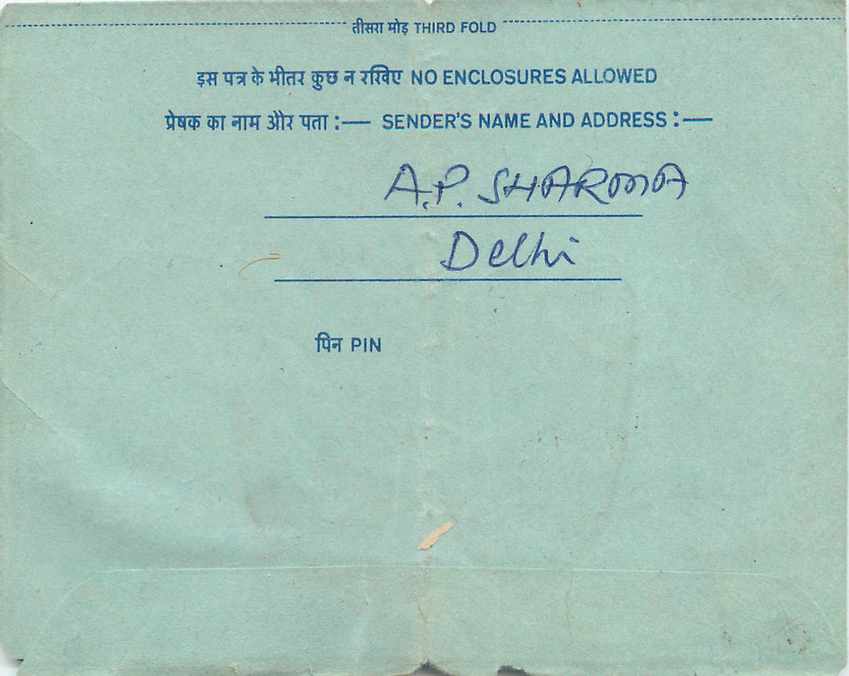 तीसरा मोड़ THIRD FOLD
इस पत्र के भीतर कुछ न रखिए NO ENCLOSURES ALLOWED
प्रेषक का नाम और पता :— SENDER'S NAME AND ADDRESS :—
A.P. SHARMA
Delhi
पिन PIN